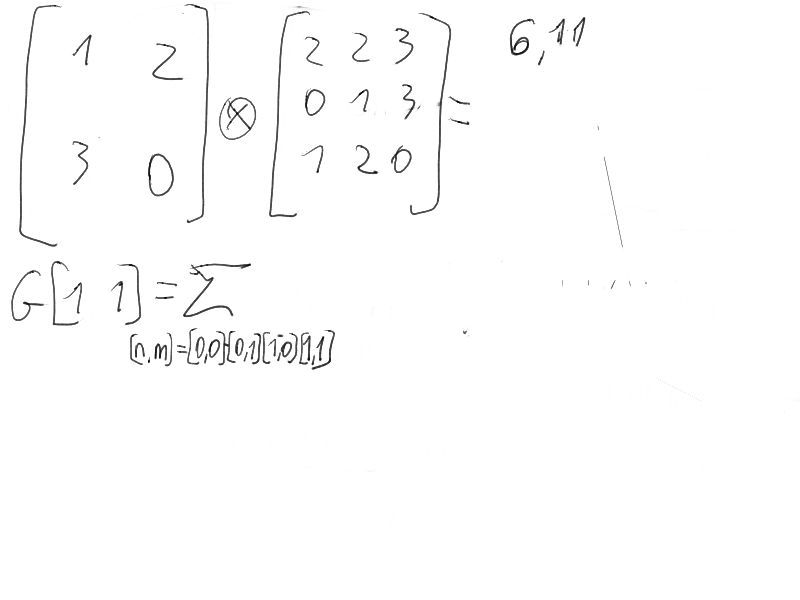 [1 2 3 0] ⊗ [2 2 3 0 1 3 1 2 0] = 6,11
G[1 1] = Σ
[n,m]=[0,0][0,1][1,0][1,1]